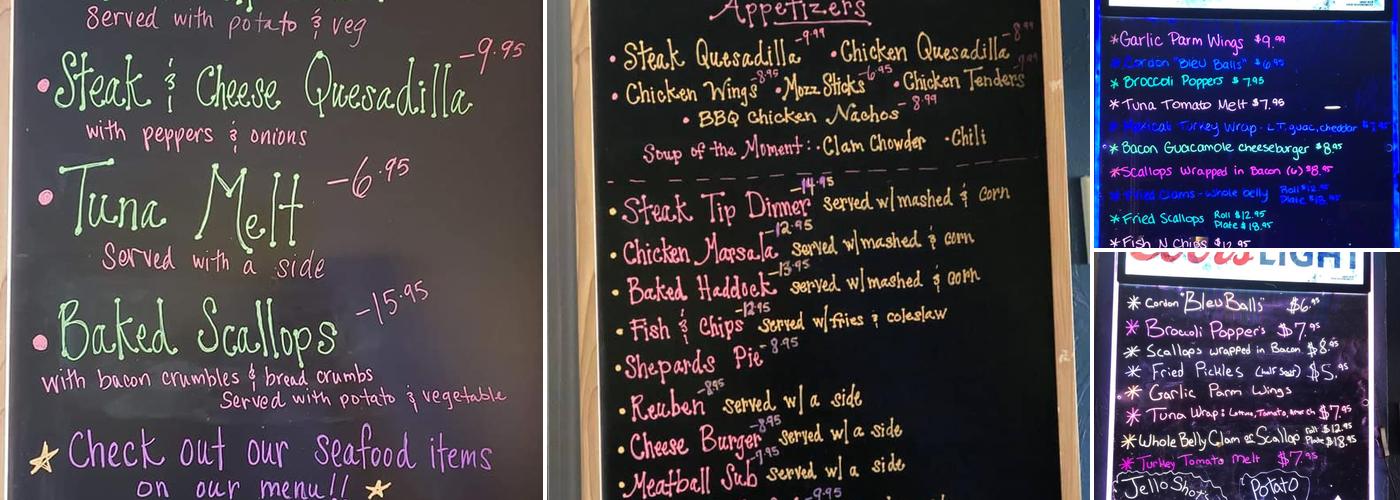 served with potato & veg
• Steak & Cheese Quesadilla -9.95
with peppers & onions
• Tuna Melt -6.95
Served with a side
• Baked Scallops -15.95
with bacon crumbles & bread crumbs
Served with potato & vegetable
Check out our seafood items
on our menu!!
Appetizers
• Steak Quesadilla -9.99 • Chicken Quesadilla -8.99
• Chicken Wings -8.95 • Mozz Sticks -6.95 • Chicken Tenders
• BBQ Chicken Nachos -8.99
Soup of the Moment: • Clam Chowder • Chili
• Steak Tip Dinner -14.95 served w/mashed & corn
• Chicken Marsala -12.95 served w/mashed & corn
• Baked Haddock -13.95 served w/mashed & corn
• Fish & Chips -12.95 served w/fries & coleslaw
• Shepards Pie -8.95
• Reuben -8.95 served w/ a side
• Cheese Burger -8.95 served w/ a side
• Meatball Sub -7.95 served w/ a side
-9.95
*Garlic Parm Wings $9.99
*Cordon "Bleu Balls" $6.95
*Broccoli Poppers $7.95
*Tuna Tomato Melt $7.95
*Mexicali Turkey Wrap - L,T,guac,cheddar
*Bacon Guacamole cheeseburger $8.95
*Scallops Wrapped in Bacon (6) $8.95
*Fried Clams - whole belly Roll $12.95
Plate $18.95
*Fried Scallops Roll $12.95
Plate $18.95
*Fish N Chips $12.95
Coors LIGHT
* Cordon "Bleu Balls" $6.95
* Broccoli Poppers $7.95
* Scallops wrapped in Bacon $8.95
* Fried Pickles (half sour) $5.95
* Garlic Parm Wings
* Tuna Wrap: Lettuce, Tomato, $7.95
* Whole Belly Clam or Scallop roll $12.95
Plate $18.95
* Turkey Tomato melt $7.95
Jello Shots Potato